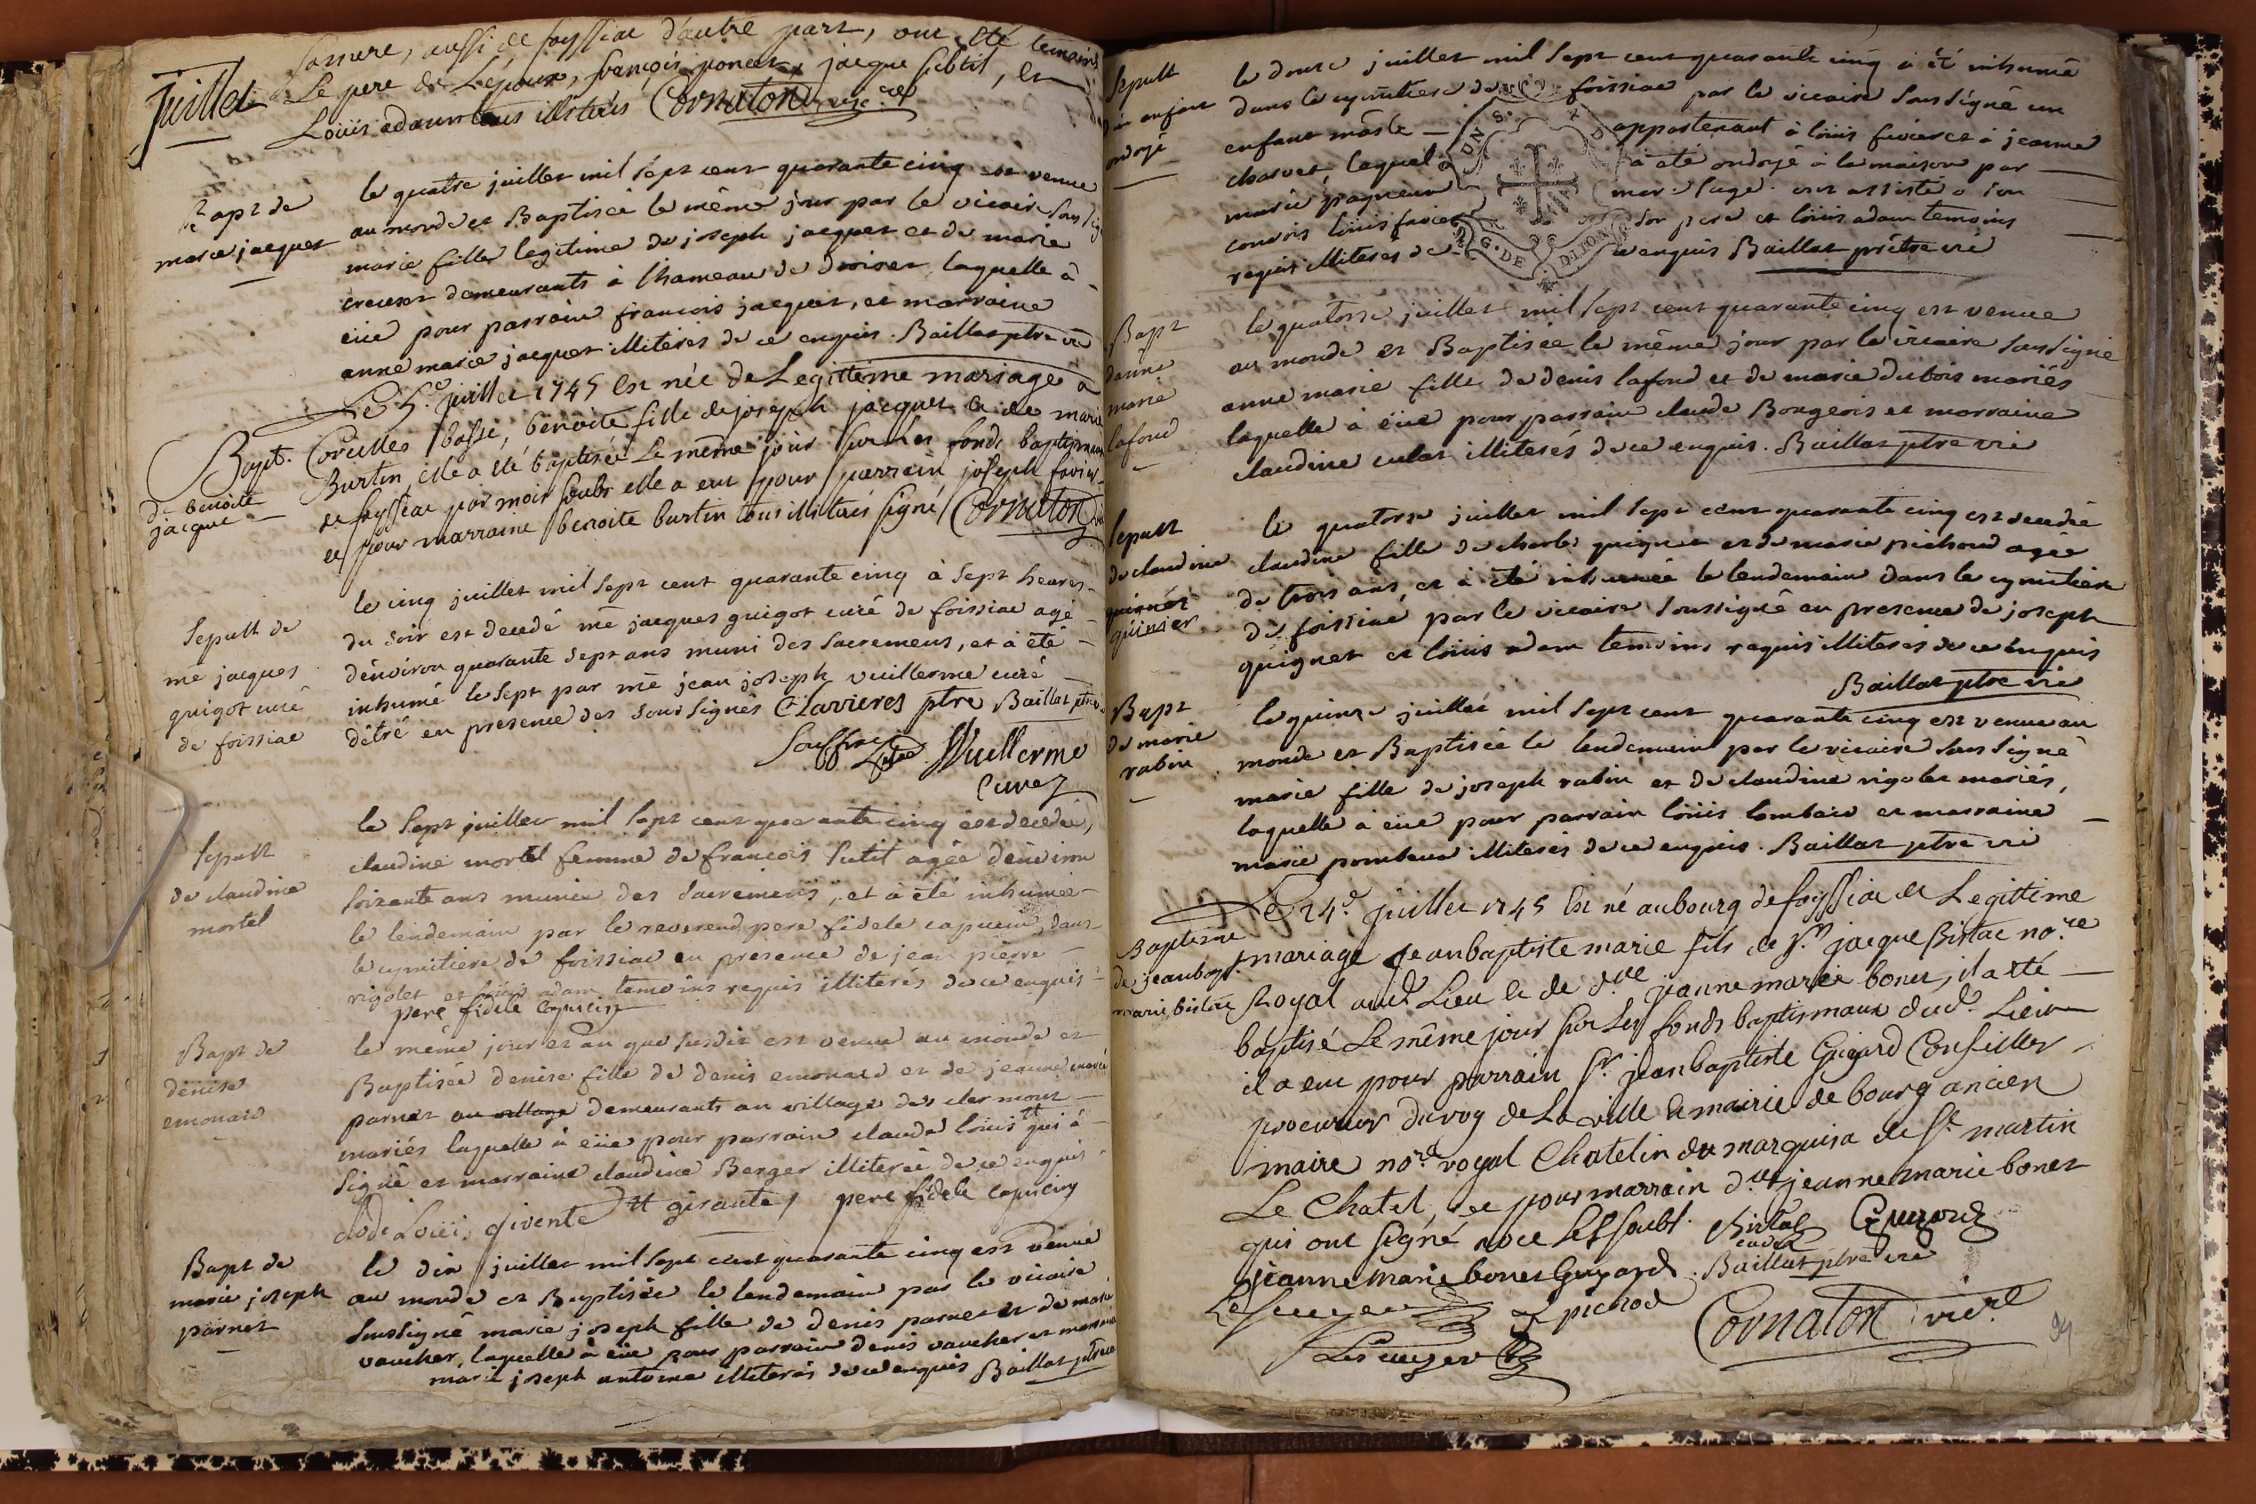 Juillet
Sarrere, aussi de foyssiac d'autre part, ont été temoins
Le pere de Lepoux, francois poncet, jacque subtil, et
Louis adam tous illiterés Cornaton vic.re
Bapt de
marie jacquet
le quatre juillet mil sept cent quarante cinq est venue
au monde et Baptisée le même jour par le vicaire sous sig
marie fille legitime de joseph jacquet et de marie
creuset demeurants à l'hameau de Dnoiset, laquelle à
eüe pour parrain francois jacquet, et marraine
anne marie jacquet illiterés de ce enquis. Baillat ptre vre
Bapt.
de benoite
jacque
Le 5.e juillet 1745 Est née de Legittime mariage a
Corcelles basse, benoite fille de joseph jacquet & de marie
Burtin, elle a été baptisée Le même jour sur les fonds baptismaux
de foyssiac par moir soubs elle a eut pour parrain joseph favier
et pour marraine benoite burtin tous illiterés signé Cornaton
Sepult de
me jacques
guigot curé
de foissiac
le cinq juillet mil sept cent quarante cinq à sept heures
du soir est decedé me jacques guigot curé de foissiac agé
d'environ quarante sept ans muni des sacremens, et à été
inhumé le sept par me jean joseph vuillerme curé
d'êtré en presence des sous signés Clavieres ptre Baillat ptre v
Vuillerme
Curez
Sepult
de claudine
mortel
le sept juillet mil sept cent quarante cinq est decedée,
claudine mortel femme de francois sutil agée d'environ
soixante ans munie des sacremens, et à été inhumée
le lendemain par le reverend pere fidele capucin, dans
le cymitiere de foissiac en presence de jean pierre
rigolet et louis adam temoins requis illiterés de ce enquis
pere fidele capucin
Bapt de
denise
emonard
le même jour et an que susdit est venue au monde et
Baptisée denise fille de denis emonard et de jeanne marie
parnet au village demeurants au village des clermont
mariés laquelle à eüe pour parrain claude louis tt qui à
signé et marraine claudine Berger illiterée de ce enquis
clode Louis givente tt girante pere fidele capucin
Bapt de
marie joseph
parnet
le dix juillet mil sept cent quarante cinq est venue
au monde et Baptisée le lendemain par le vicaire
soussigné marie joseph fille de denis parnet et de marie
vaucher, laquelle à eüe pour parrain denis vaucher et marraine
marie joseph antoine illiterés de ce enquis Baillat ptre vre
Sepult
d'un enfant
ondoyé
le douze juillet mil sept cent quarante cinq à été inhumé
dans le cymitiere de foissiac par le vicaire sous signé un
enfant mâsle appartenant à louis favier et à jeanne
charvet, lequel à à été ondoyé à la maison par
marie pagneux mere sage. ont assisté à son
convois louis favier son pere et louis adam temoins
requis illiterés de ce enquis Baillat prêtre vre
G. DE DIJON
Bapt
danne
marie
lafond
le quatorze juillet mil sept cent quarante cinq est venue
au monde et Baptisée le même jour par le vicaire soussigné
anne marie fille de denis lafond et de marie dubois mariés
laquelle à eüe pour parrain claude Bongeois et marraine
claudine culat illiterés de ce enquis. Baillat ptre vre
Sepult
de claudine
guignet
guinier
le quatorze juillet mil sept cent quarante cinq est decedée
claudine fille de charles guignet et de marie pichoud agée
de trois ans, et à été inhumée le lendemain dans le cymitiere
de foissiac par le vicaire soussigné en presence de joseph
guignet et louis adam temoins requis illiterés de ce enquis
Baillat ptre vre
Bapt
de marie
rabin
le quinze juillet mil sept cent quarante cinq est venue au
monde et Baptisée le lendemain par le vicaire sous signé
marie fille de joseph rabin et de claudine rigolet mariés,
laquelle à eüe pour parrain louis lombard et marraine
marie pombeux illiterés de ce enquis. Baillat ptre vre
Baptisme
de jean bapt.
marie bistac
Le 24.e juillet 1745 Est né au bourg de foyssiac de Legittime
mariage jean baptiste marie fils de Sr. jacque Bistac no.re
Royal aud. Lieu & de d.lle jeanne marie bonet, il a été
baptisé Le même jour sur Les fonds baptismaux dud. Lieu
il a eut pour parrain Sr. jean baptiste Guyard Conseiller
procureur du roy de La ville & mairie de bourg ancien
maire no.re royal Chatelin du marquisa de St. martin
Le Chatel, et pour marrain d.lle jeanne marie bonet
qui ont signé avec Les soubs. Bistac Guyard
cadet
jeanne marie bonet Guyard. Baillat ptre vre
pichod
Cornaton vic.re
94